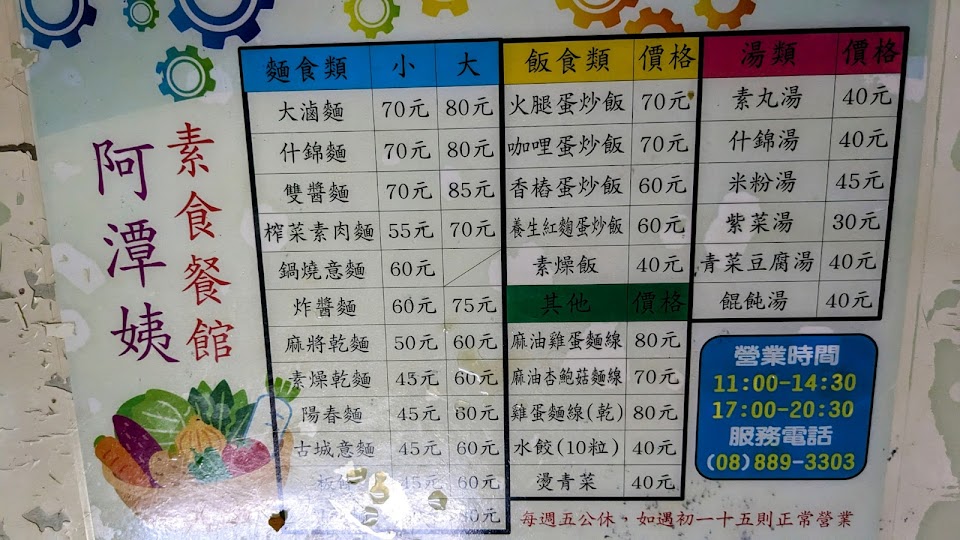 阿潭姨
素食餐館
麵食類 小 大
大滷麵 70元 80元
什錦麵 70元 80元
雙醬麵 70元 85元
榨菜素肉麵 55元 70元
鍋燒意麵 60元
炸醬麵 60元 75元
麻將乾麵 50元 60元
素燥乾麵 45元 60元
陽春麵 45元 60元
古城意麵 45元 60元
板 45元 60元
元
飯食類 價格
火腿蛋炒飯 70元
咖哩蛋炒飯 70元
香椿蛋炒飯 60元
養生紅麴蛋炒飯 60元
素燥飯 40元
其他 價格
麻油雞蛋麵線 80元
麻油杏鮑菇麵線 70元
雞蛋麵線(乾) 80元
水餃(10粒) 40元
燙青菜 40元
湯類 價格
素丸湯 40元
什錦湯 40元
米粉湯 45元
紫菜湯 30元
青菜豆腐湯 40元
餛飩湯 40元
營業時間
11:00-14:30
17:00-20:30
服務電話
(08)889-3303
每週五公休，如遇初一十五則正常營業